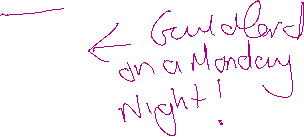 ← Guildford
on a Monday
Night!